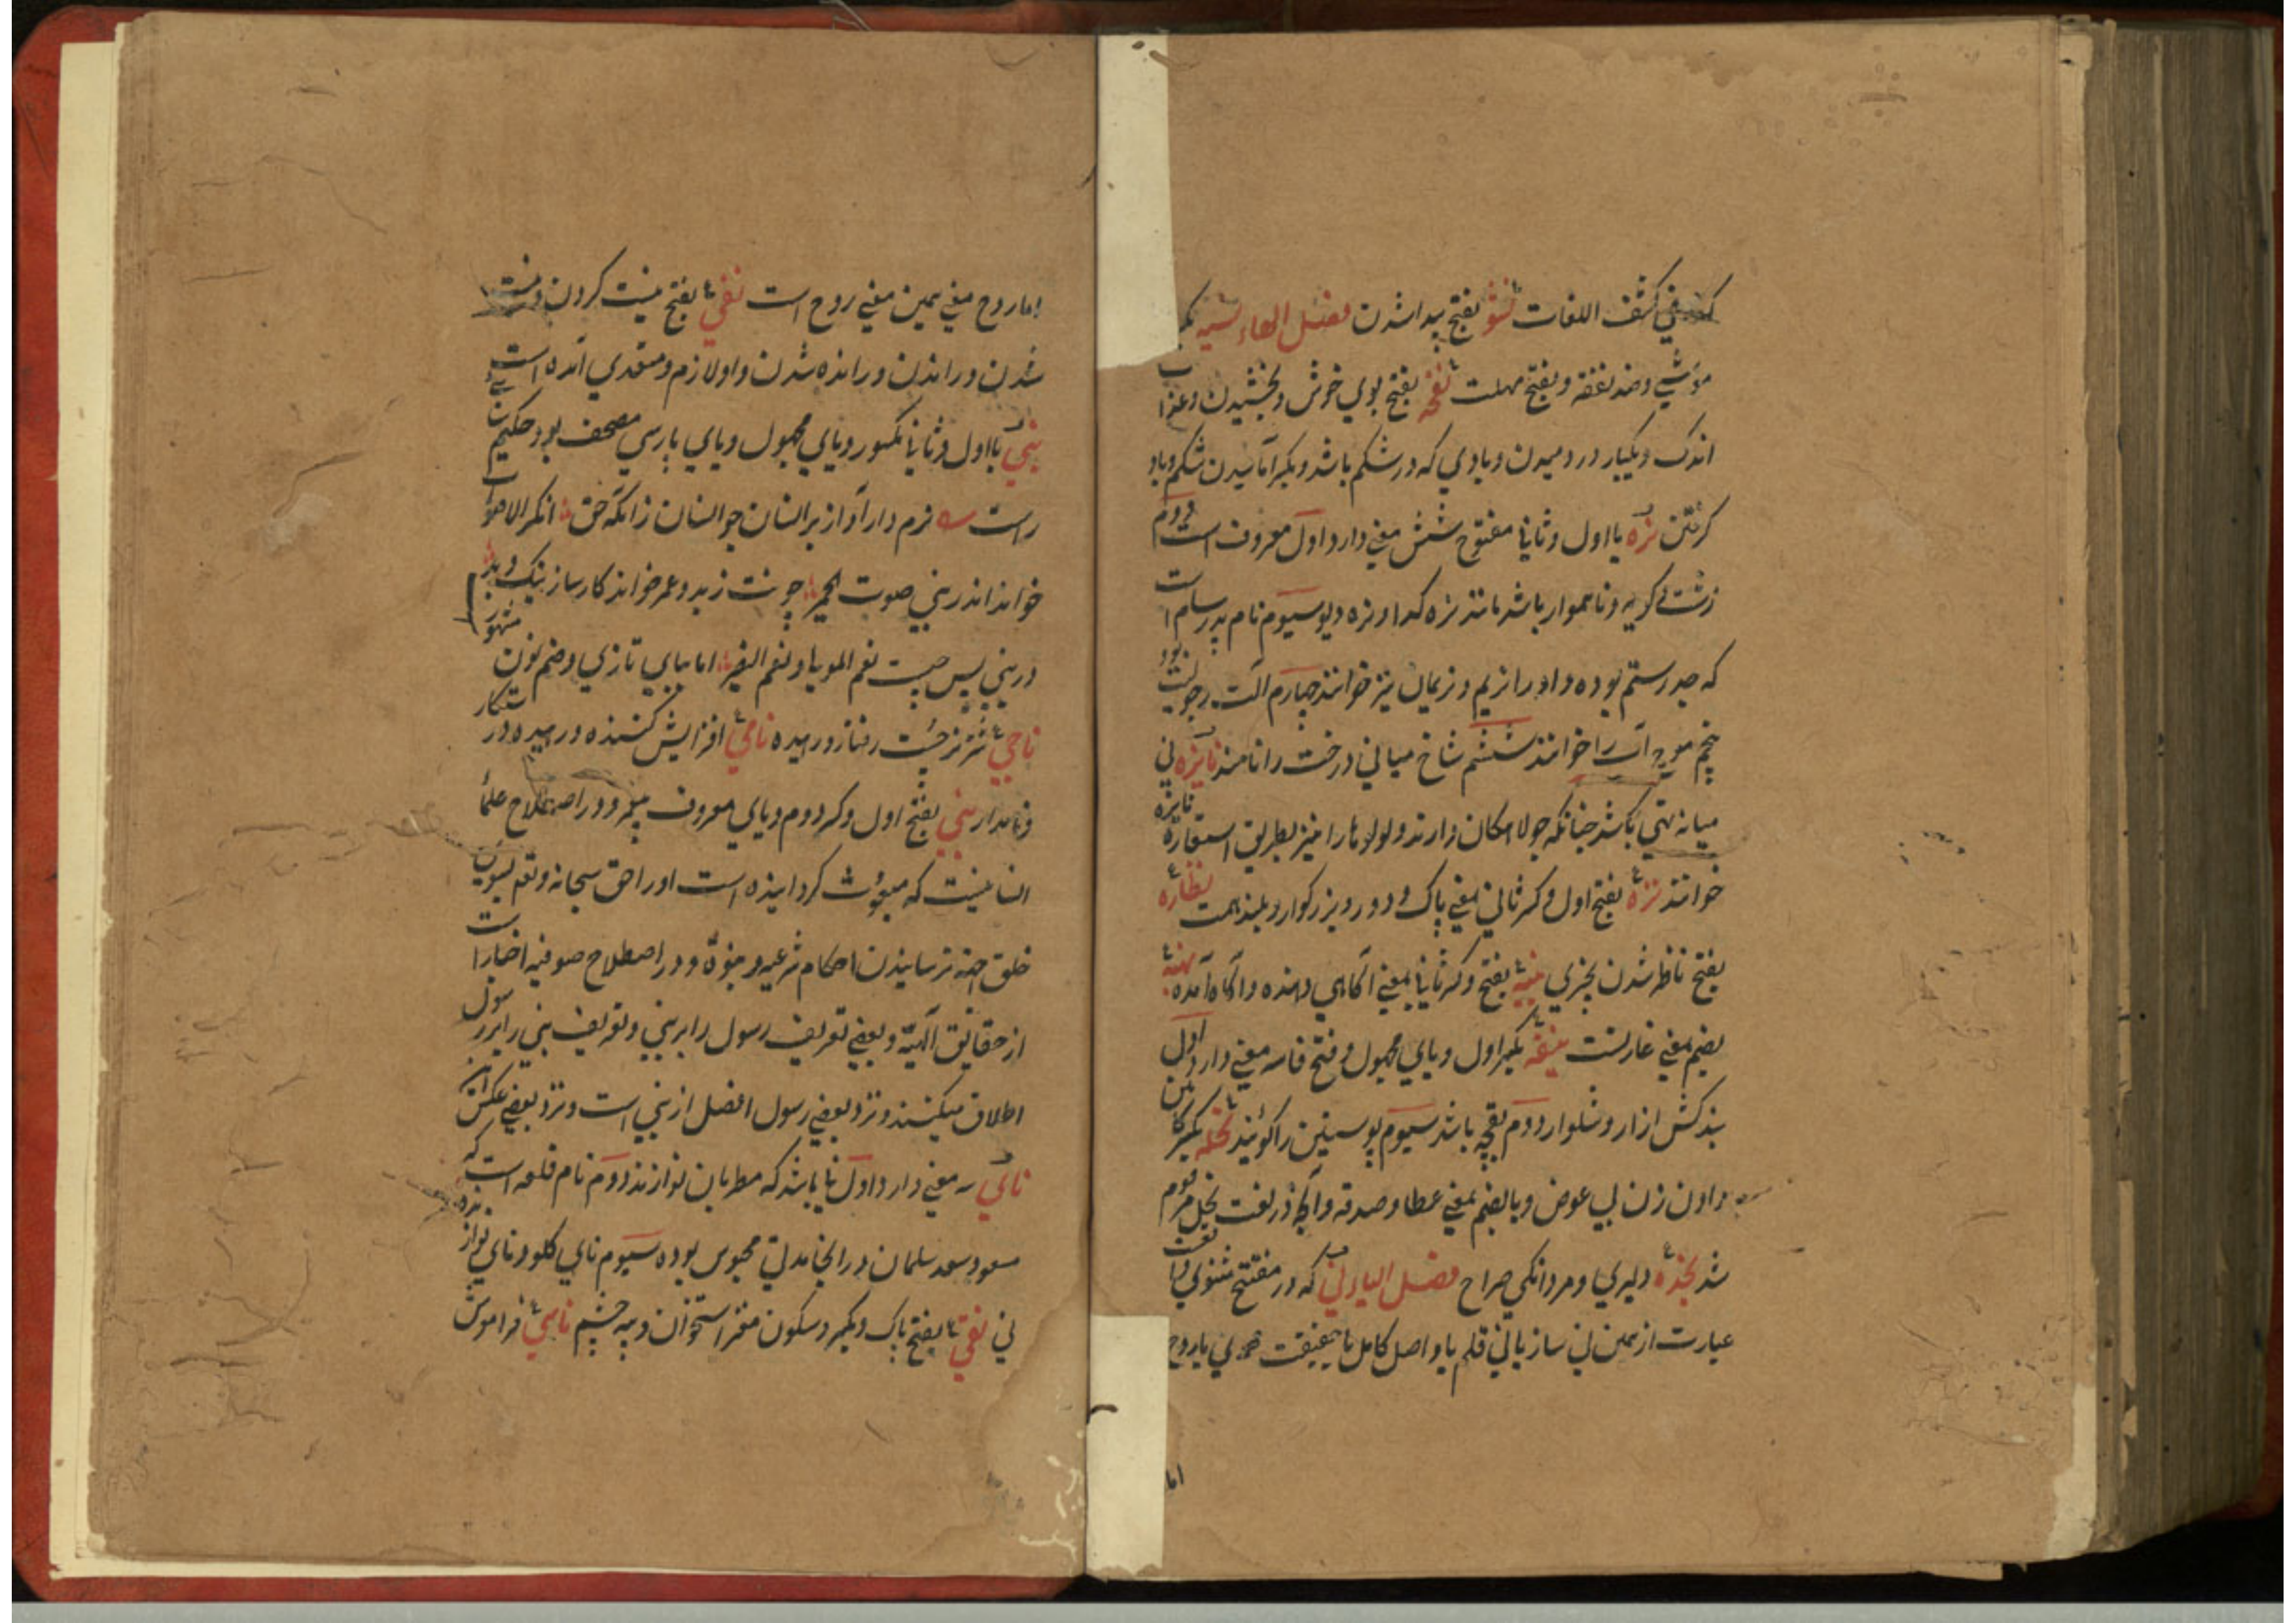 کذا فی کشف اللغات نشؤ بفتح پیدا شدن فصل الهاء نسیه بکـ
موشي وضد نفقه وبفتح مهلت نفحه بفتح بوي خوش وبخشیدن وعذاب
اندک ویکبار در دمیدن وبادي که در شکم باشد وبکسر آماسیدن شکم وباد
کرفتن نره بااول وثانی مفتوح شش معنی دارد اول معروف است دوم
زشت کریه وناهموار باشد مانند نره کدا ونره دیو سیوم نام پدر سام است
که جد رستم بوده واورا نریم ونریمان نیز خوانند چهارم آلت رجولیت بود
پنجم موج آب را خوانند ششم شاخ میانی درخت را نامند نایزه نی
میانه تهی باشد چنانکه جولاهکان دارند ولوله‌ها را نیز بطریق استعاره نایزه
خوانند نزه بفتح اول وکسر ثانی بمعنی پاک ودور وبزرکوار وبلند همت نظاره
بفتح ناظر شدن بچیزی نبیه بفتح وکسر ثانی بمعنی آکاهی دهنده وآکاه آمده نهبه
بضم بمعنی غارتست نیفه بکسر اول ویاي مجهول وفتح فا سه معنی دارد اول
بندکش ازار وشلوار دوم بقچه باشد سیوم پوستین را کویند نحله بکسر کابین
دادن زن بی عوض وبالضم بمعنی عطا وصدقه وآنچه در لغت نحل مرقوم
شد نجده دلیري ومردانکي صراح فصل الیاء نی که در مفتتح مثنوي
عبارت از همین نی ساز یا نی قلم یا واصل کامل یا حقیقت محمدي یا روح
اما
اما روح معنی همین معنی روح است نفی بفتح نیست کردن ونیست
شدن وراندن ورانده شدن واو لازم ومتعدي آمده است
نبی بااول وثانی مکسور ویاي مجهول ویاي پارسي مصحف بود حکیم سنائي
راست نرم دار آواز بر انسان چو انسان زانکه حق انکر الاصوات
خواند اندر نبی صوت الحمیر چونت زید وعمر خواند کارساز نیک وبد
در نبی پس چیست نعم المولی ونعم النصیر اما ببای تازي وضم نون مشهور
ناجي شتر تیز رفتار ورهیده نامي افزایش کننده ورهیده در ستکار
ونامدار نبي بفتح اول وکسر دوم ویاي معروف پیغمبر ودر اصطلاح علما
انسانیست که مبعوث کردانیده است اورا حق سبحانه وتعالی بسوی
خلق جهة رسانیدن احکام شرعیه ودر اصطلاح صوفیه اخبار است
از حقائق الهیه وبعضی تعریف رسول را بر نبي وتعریف نبي را بر رسول
اطلاق میکنند ونزد بعضی رسول افضل از نبي است ونزد بعضی عکس آن
ناي سه معنی دارد اول نی باشد که مطربان نوازند دوم نام قلعه است که
مسعود سعد سلمان در انجا مدتی محبوس بوده سیوم ناي کلو وناي نوازنده
نی نقي بفتح پاک وبکسر وسکون مغز استخوان وپیه چشم ناسي فراموش